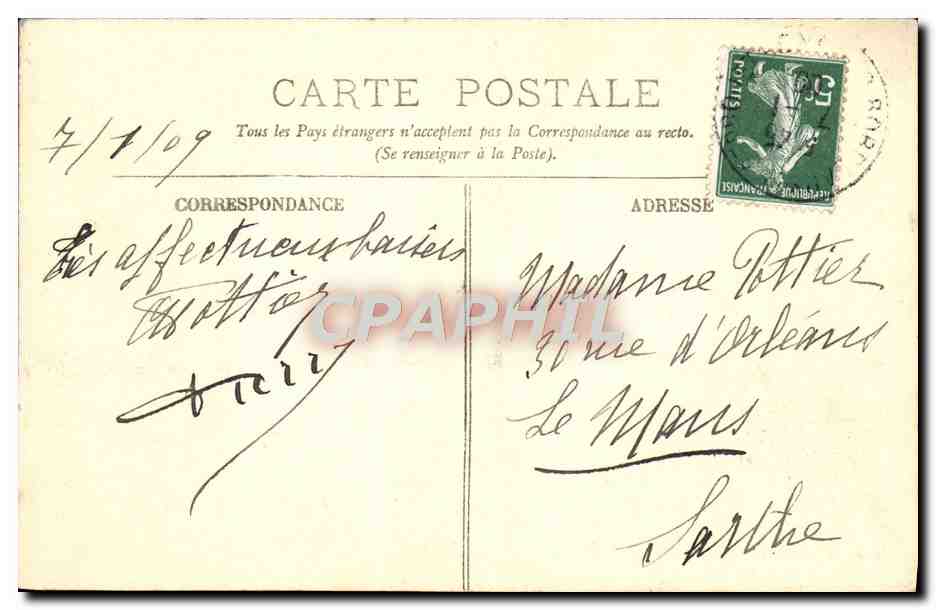 CARTE POSTALE
7/1/09
Tous les Pays étrangers n'acceptent pas la Correspondance au recto.
(Se renseigner à la Poste).
CORRESPONDANCE
Très affectueux baisers
Pottier
ADRESSE
Madame Pottier
30 rue d'Orléans
Le Mans
Sarthe
5c
POSTES
REPUBLIQUE FRANÇAISE
CPAPHIL